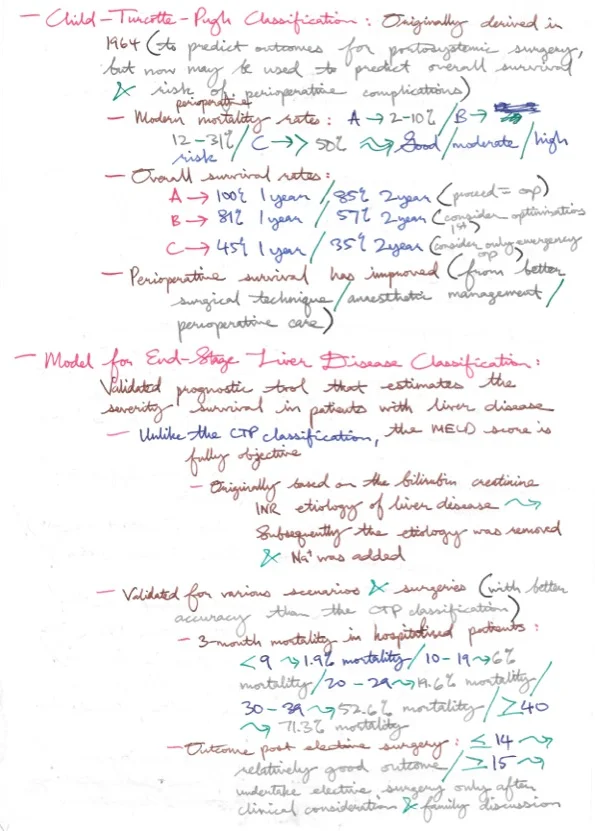 — Child-Turcotte-Pugh Classification : Originally derived in
1964 (to predict outcomes for portosystemic surgery,
but now may be used to predict overall survival
& risk of perioperative complications)
perioperative
— Modern mortality rates : A → 2-10% / B →
12-31% / C → > 50% ⇝ Good / moderate / high
risk
— Overall survival rates :
A → 100% 1 year / 85% 2 year (proceed = op)
B → 81% 1 year / 57% 2 year (consider optimisations
1st)
C → 45% 1 year / 35% 2 year (consider only emergency
op)
— Perioperative survival has improved (from better
surgical technique / anaesthetic management /
perioperative care)
— Model for End-Stage Liver Disease Classification :
Validated prognostic tool that estimates the
severity / survival in patients with liver disease
— Unlike the CTP classification, the MELD score is
fully objective
— Originally based on the bilirubin creatinine
INR etiology of liver disease ⇝
Subsequently the etiology was removed
& Na⁺ was added
— Validated for various scenarios & surgeries (with better
accuracy than the CTP classification)
— 3-month mortality in hospitalised patients :
<9 ⇝ 1.9% mortality / 10-19 ⇝ 6%
mortality / 20-29 ⇝ 19.6% mortality /
30-39 ⇝ 52.6% mortality / ≥40
⇝ 71.3% mortality
— Outcome post elective surgery : ≤ 14 ⇝
relatively good outcome / ≥ 15 ⇝
undertake elective surgery only after
clinical consideration & family discussion